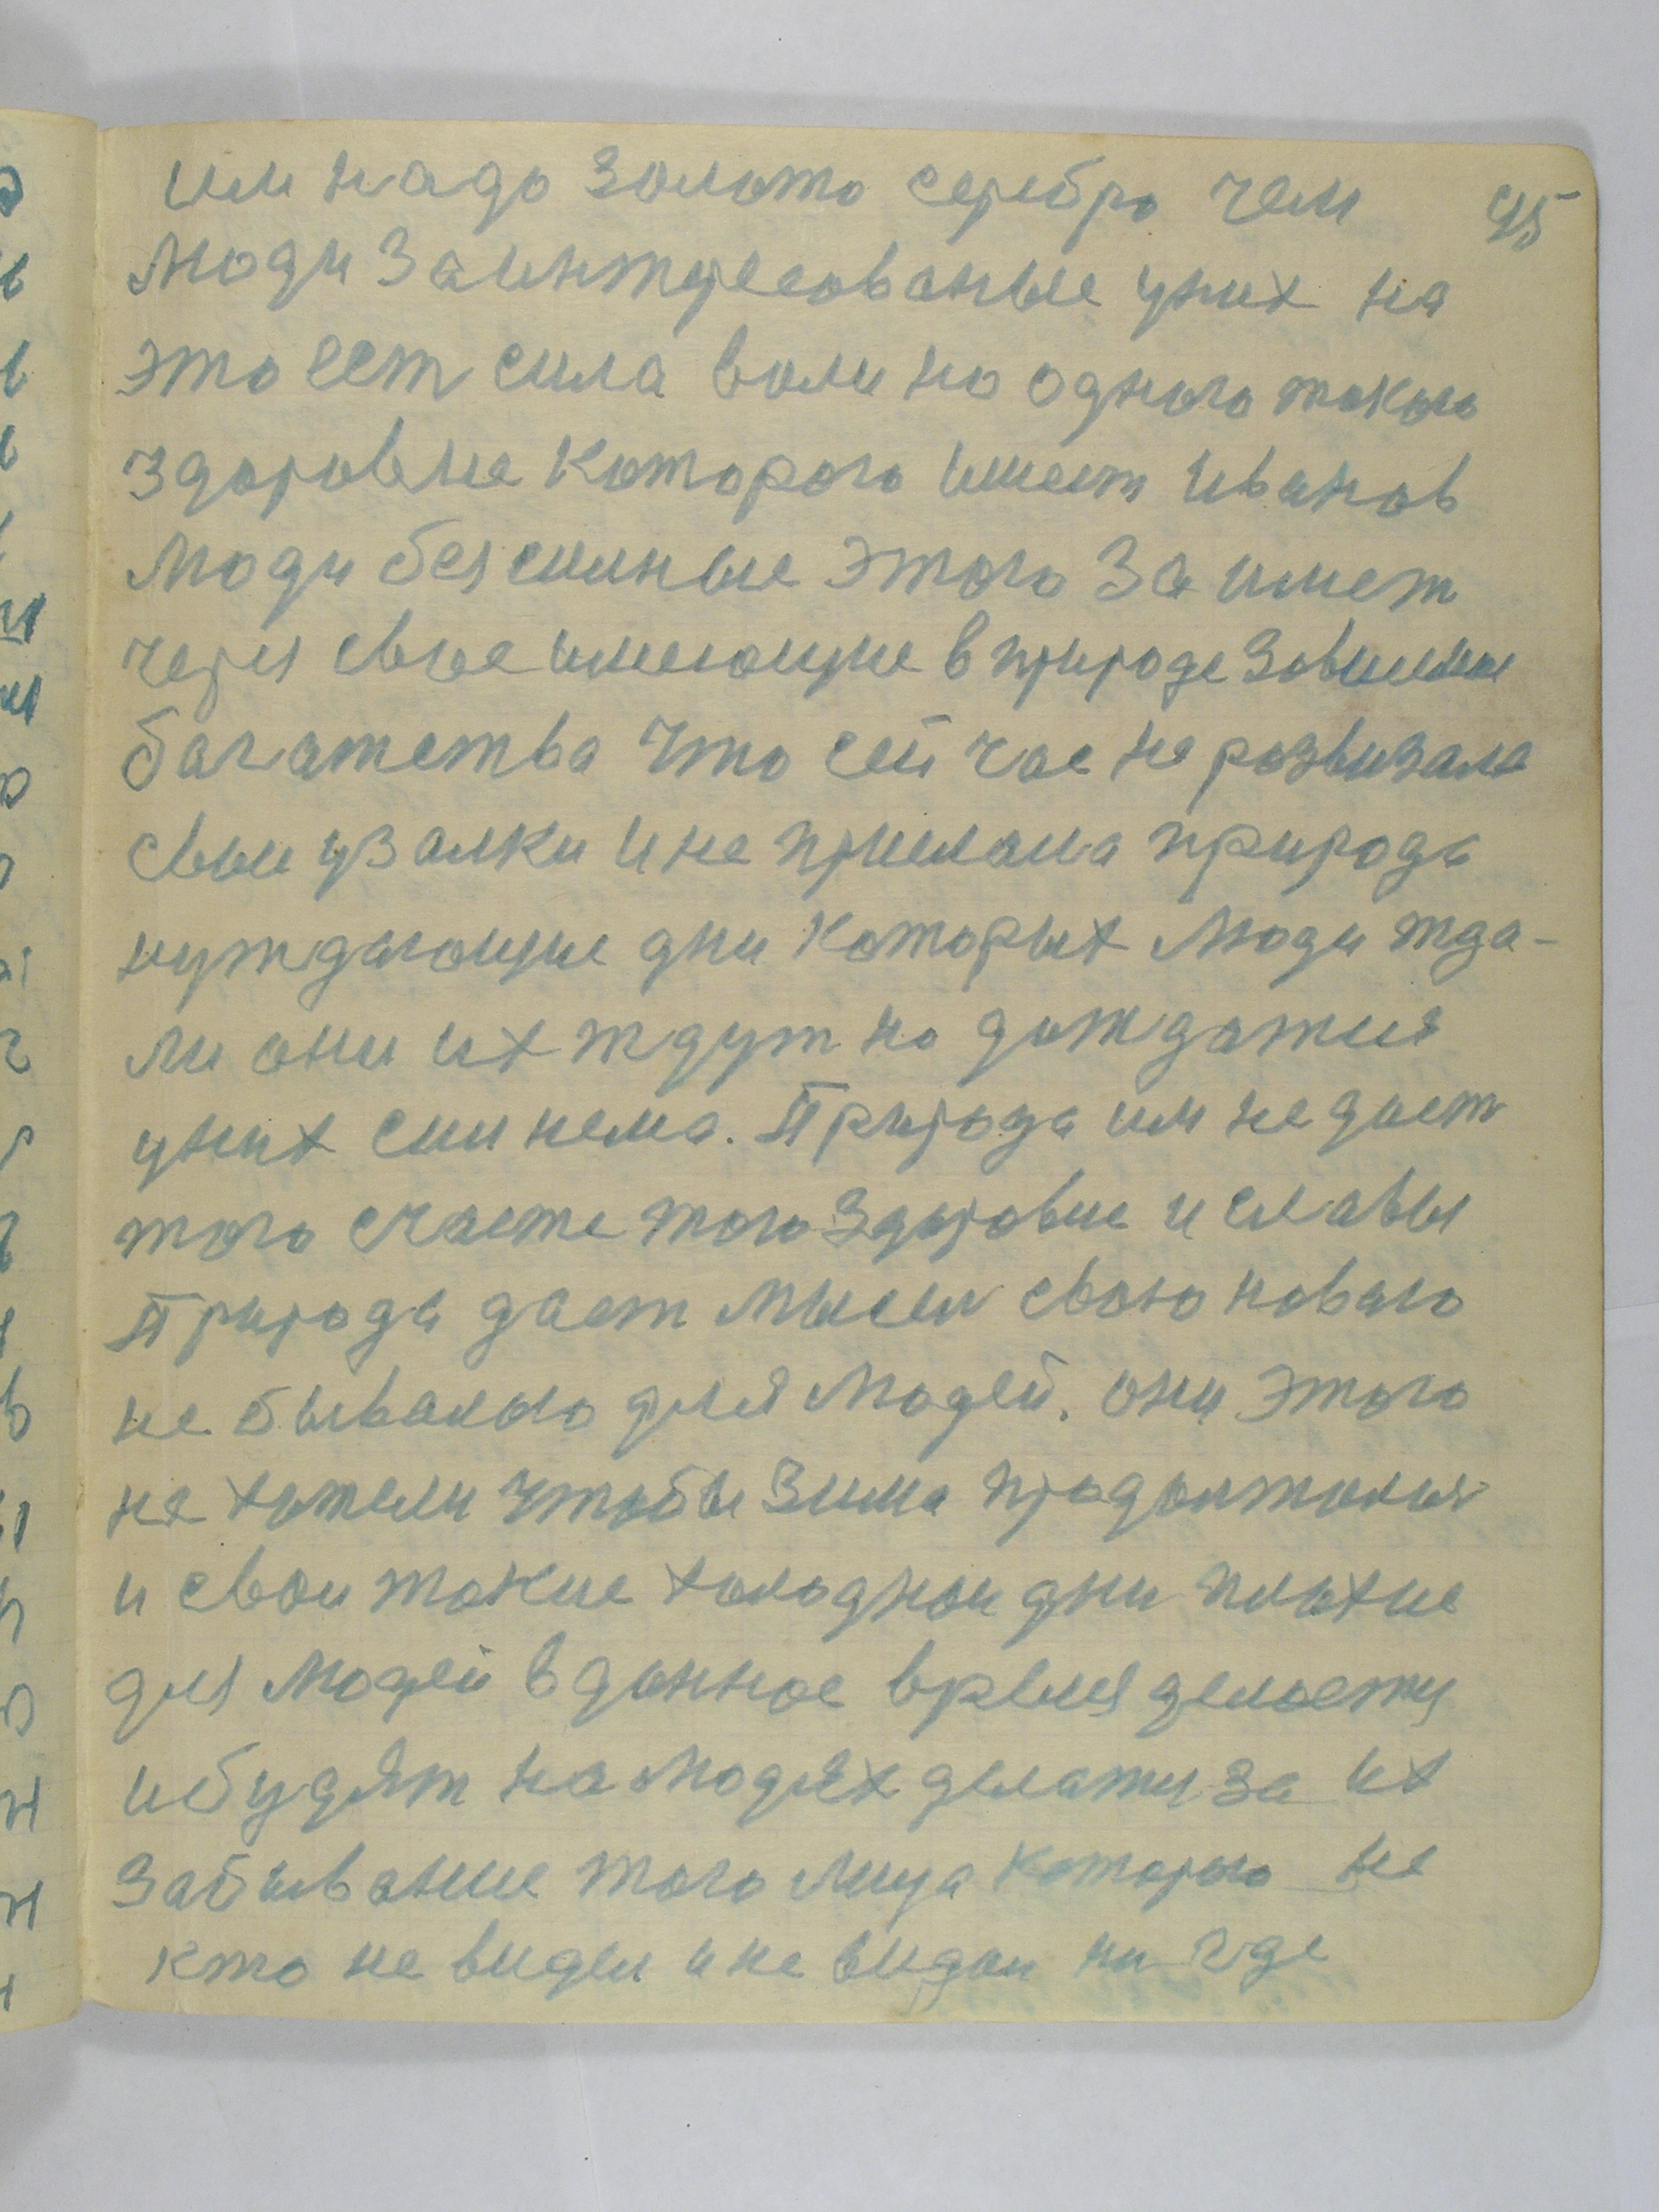 им надо золото серебро чем 45
люди заинтересованые уних на
это ест сила воли но одного такого
здоровие которого имеет Иванов
люди безсилные этого за имет
через свое имеющие в природе зависимые
багатства что сей час не розвизала
свои узалки и не прислала природа
нуждающие дни которых люди жда-
ли они их ждут но дождатия
уних сил нема. Природа им не дает
того счасте того здоровие и славы
Природа дает мысел свою новаго
не бывалого для людей. они этого
не хотели чтобы зима продолжалася
и свои такие холоднои дни плохие
для людей в данное время делаету
и будят на людях делату за их
забывание того лица которого не
кто не видел и не видал ни где